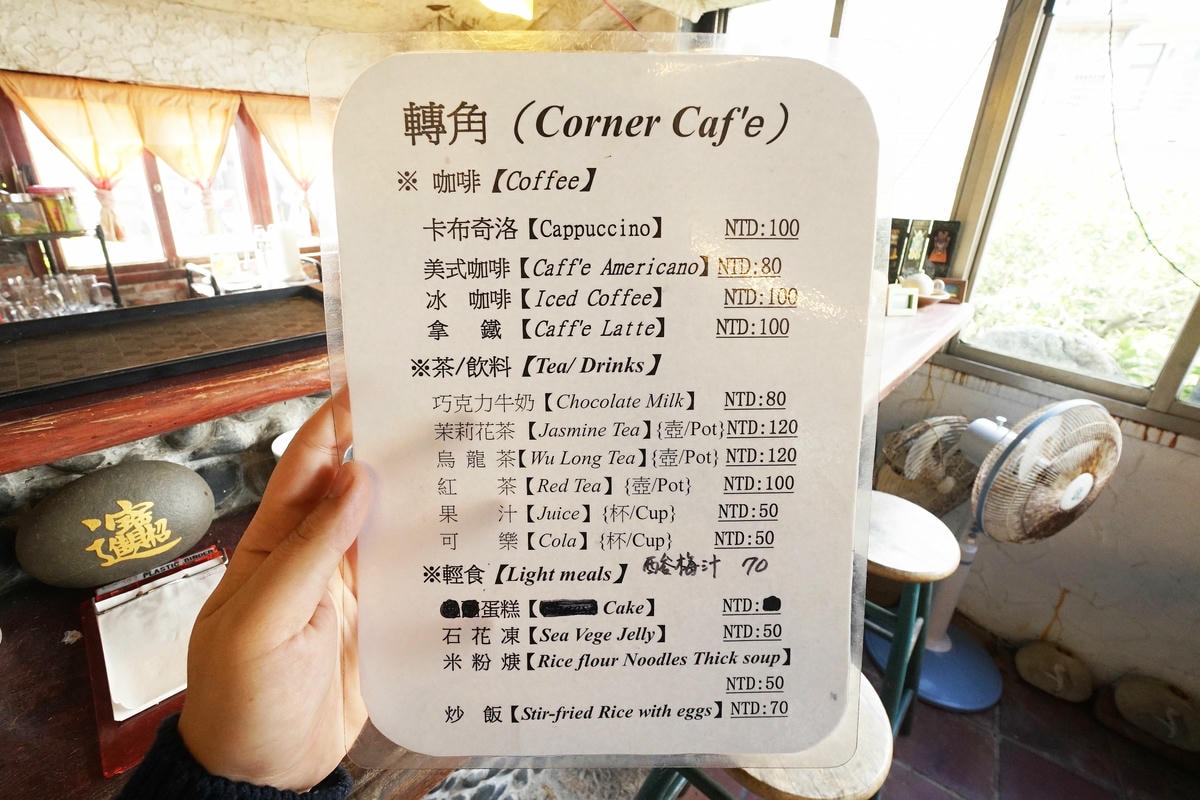 轉角（Corner Caf'e）
※ 咖啡【Coffee】
卡布奇洛【Cappuccino】 NTD:100
美式咖啡【Caff'e Americano】NTD:80
冰 咖啡【Iced Coffee】 NTD:100
拿 鐵【Caff'e Latte】 NTD:100
※茶/飲料【Tea/ Drinks】
巧克力牛奶【Chocolate Milk】 NTD:80
茉莉花茶【Jasmine Tea】{壺/Pot}NTD:120
烏 龍 茶【Wu Long Tea】{壺/Pot} NTD:120
紅 茶【Red Tea】{壺/Pot} NTD:100
果 汁【Juice】{杯/Cup} NTD:50
可 樂【Cola】{杯/Cup} NTD:50
酸梅汁 70
※輕食【Light meals】
蛋糕【 Cake】 NTD:
石 花 凍【Sea Vege Jelly】 NTD:50
米 粉 焿【Rice flour Noodles Thick soup】
NTD:50
炒 飯【Stir-fried Rice with eggs】NTD:70
PLASTIC BINDER